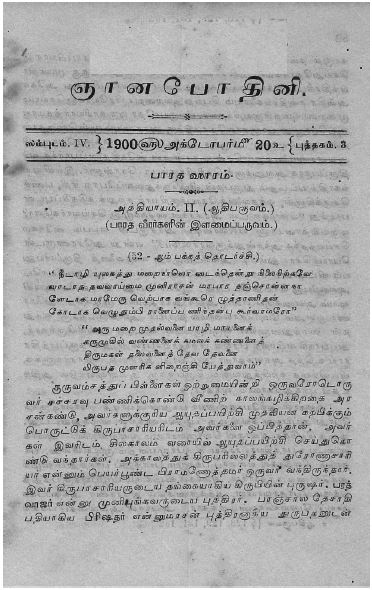 ஞானபோதினி.
ஸம்புடம். IV. } 1900 ௵ அக்டோபர்௴ 20௳ { புத்தகம். 3
பாரத ஹாரம்.
அத்தியாயம். II. (ஆதிபருவம்.)
(பாரத வீரர்களின் இளமைப்பருவம்.)
(52 - ஆம் பக்கத் தொடர்ச்சி.)
"நீடாழி யுலகத்து மறைநாலொ டைந்தென்று நிலைநிற்கவே
வாடாத தவவாய்மை முனிராசன் மாபார தஞ்சொன்னநா
ளேடாக மாமேரு வெற்பாக வங்கூரெ ழுத்தாணிதன்
கோடாக வெழுதும்பி ரானைப்ப ணிந்தன்பு கூர்வாமரோ"
"அரு மறை முதல்வனை யாழி மாயனைக்
கருமுகில் வண்ணனைக் கமலக் கண்ணனைத்
திருமகள் தலைவனைத் தேவ தேவனை
யிருபத முளரிக ளிறைஞ்சி யேத்துவாம்"
குருவம்சத்துப் பிள்ளைகள் ஒற்றுமையின்றி ஒருவரோடொரு
வர் சச்சரவு பண்ணிக்கொண்டு வீணிற் காலங்கழிக்கிறதை அர
சன்கண்டு, அவர்களுக்குரிய ஆயுதப்பயிற்சி முதலியன கற்பிக்கும்
பொருட்டுக் கிருபாசாரியரிடம் அவர்களை ஒப்பித்தான். அவர்
கள் இவரிடம் சிலகாலம் வரையில் ஆயுதப்பயிற்சி செய்துகொ
ண்டு வந்தார்கள். அக்காலத்துக் கிருபரில்லத்துத் துரோணாசாரி
யர் என்னும் பெயர்பூண்ட பிராமணோத்தமர் ஒருவர் வந்திருந்தார்.
இவர் கிருபாசாரியருடைய தங்கையாகிய கிருபியின் புருஷர். பரத்
வாஜர் என்னு முனிபுங்கவருடைய புத்திரர். பாஞ்சால தேசாதி
பதியாகிய பிரிஷதர் என்னுமரசன் புத்திரனாகிய துருபதனுடன்